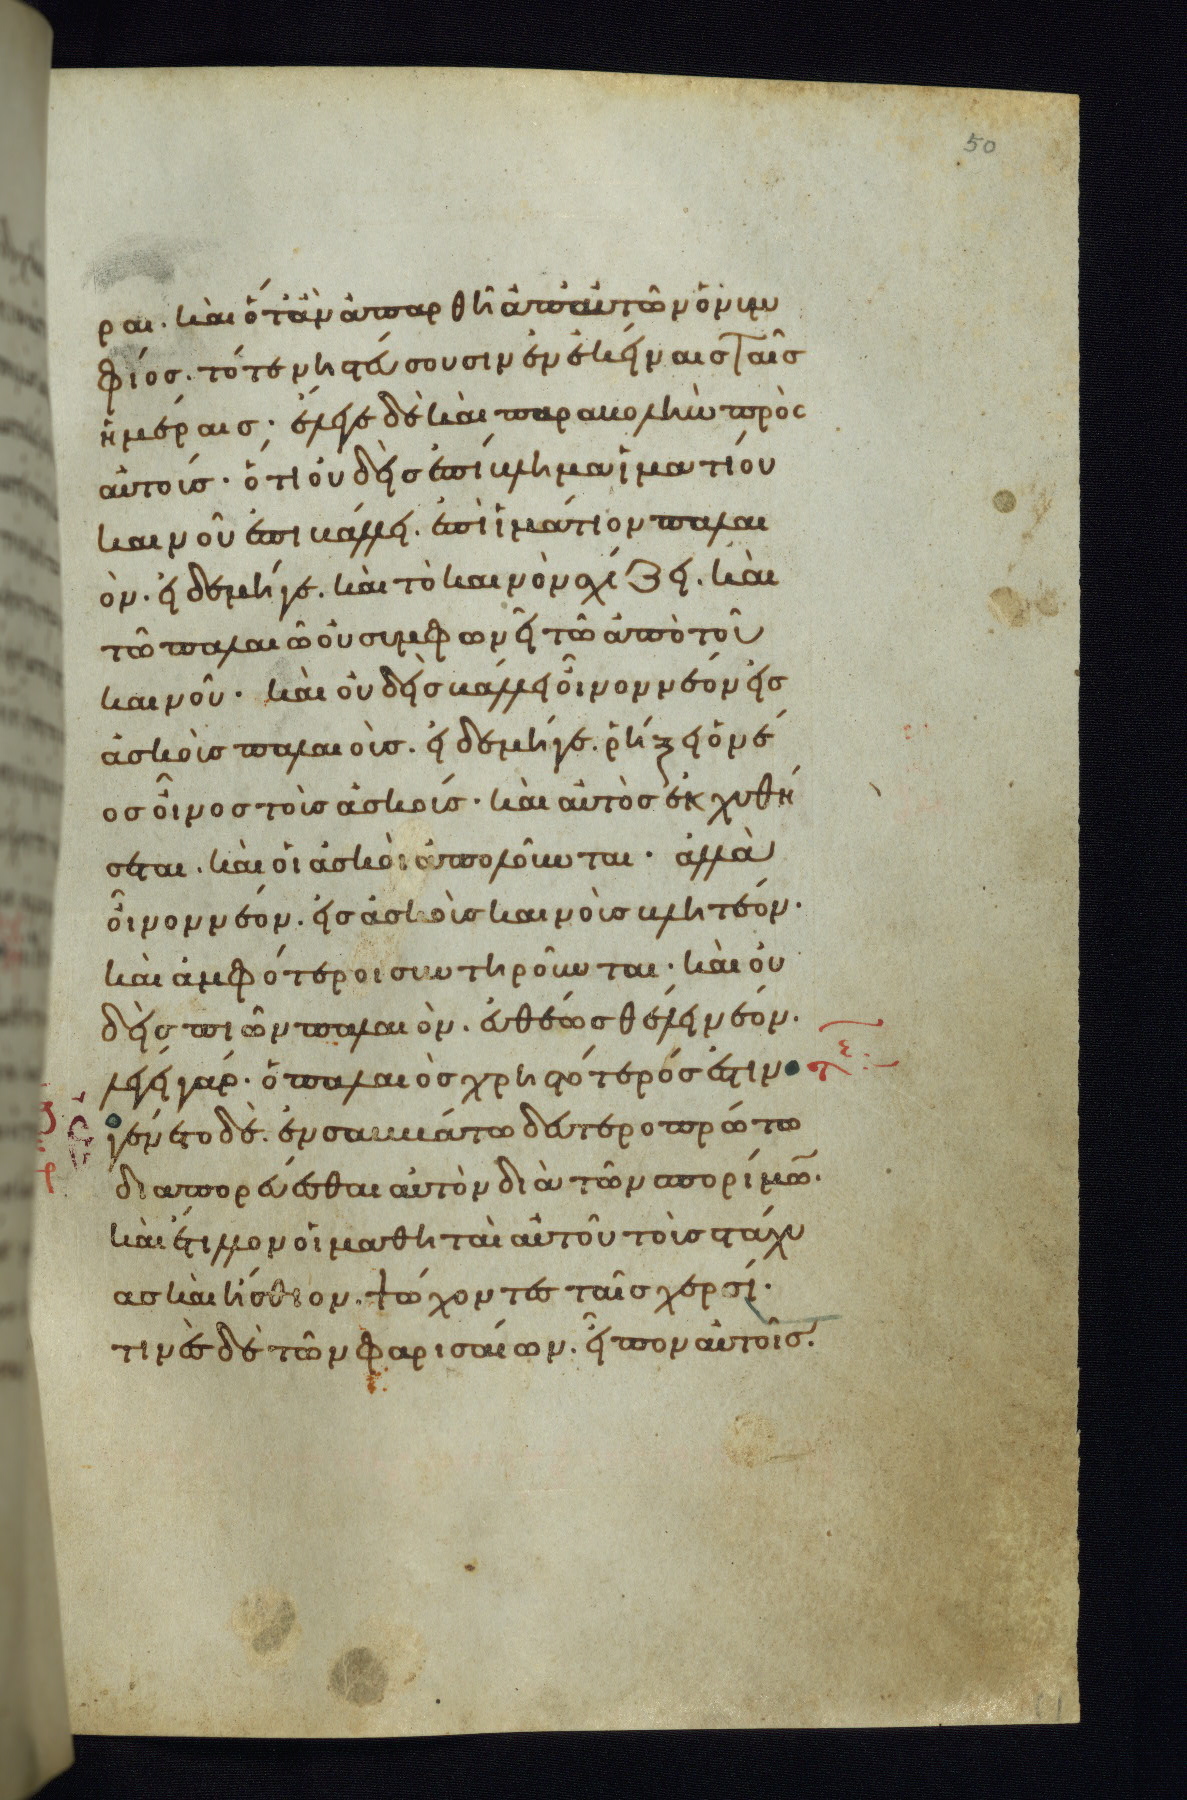 50
ραι. καὶ ὅταν ἀπαρθῆ ἀπ' αὐτῶν ὁ νυμ
φίος. τότε νηστεύσουσιν ἐν ἐκείναις ταῖς
ἡμέραις· ἔλεγε δὲ καὶ παραβολὴν πρὸς
αὐτούς. ὅτι οὐδεὶς ἐπίβλημα ἱματίου
καινοῦ ἐπιβάλλει. ἐπὶ ἱμάτιον παλαι
όν. εἰ δὲ μήγε. καὶ τὸ καινὸν σχίζει. καὶ
τῶ παλαιῶ οὐ συμφωνεῖ τῶ ἀπὸ τοῦ
καινοῦ. καὶ οὐδεὶς βάλλει οἶνον νέον εἰς
ἀσκοὺς παλαιούς. εἰ δὲ μήγε. ῥήξει ὁ νέ
ος οἶνος τοὺς ἀσκούς. καὶ αὐτὸς ἐκχυθή
σεται. καὶ οἱ ἀσκοὶ ἀπολοῦνται· ἀλλὰ
οἶνον νέον. εἰς ἀσκοὺς καινοὺς βλητέον.
καὶ ἀμφότεροι συντηροῦνται. καὶ οὐ
δεὶς πιὼν παλαιόν. εὐθέως θέλει νέον.
λέγει γάρ. ὁ παλαιὸς χρηστότερός ἐστιν
ἐγένετο δὲ. ἐν σαββάτω δευτεροπρώτω
διαπορεύεσθαι αὐτὸν διὰ τῶν σπορίμω̅.
καὶ ἔτιλλον οἱ μαθηταὶ αὐτοῦ τοὺς στάχυ
ας καὶ ἤσθιον. ψώχοντες ταῖς χερσί.
τινὲς δὲ τῶν φαρισαίων. εἶπον αὐτοῖς.